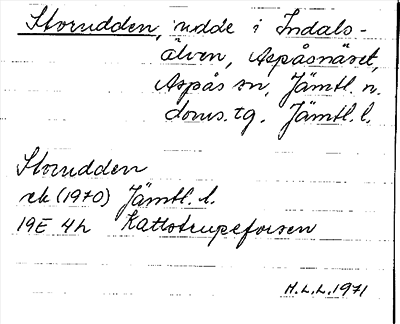 Storudden, udde i Indals-
älven, Aspåsnäset,
Aspås sn, Jämtl. n.
doms. tg. Jämtl. l.
Storudden
rek (1970) Jämtl. l.
19E 4h Kattstrupeforsen
H.L.L. 1971